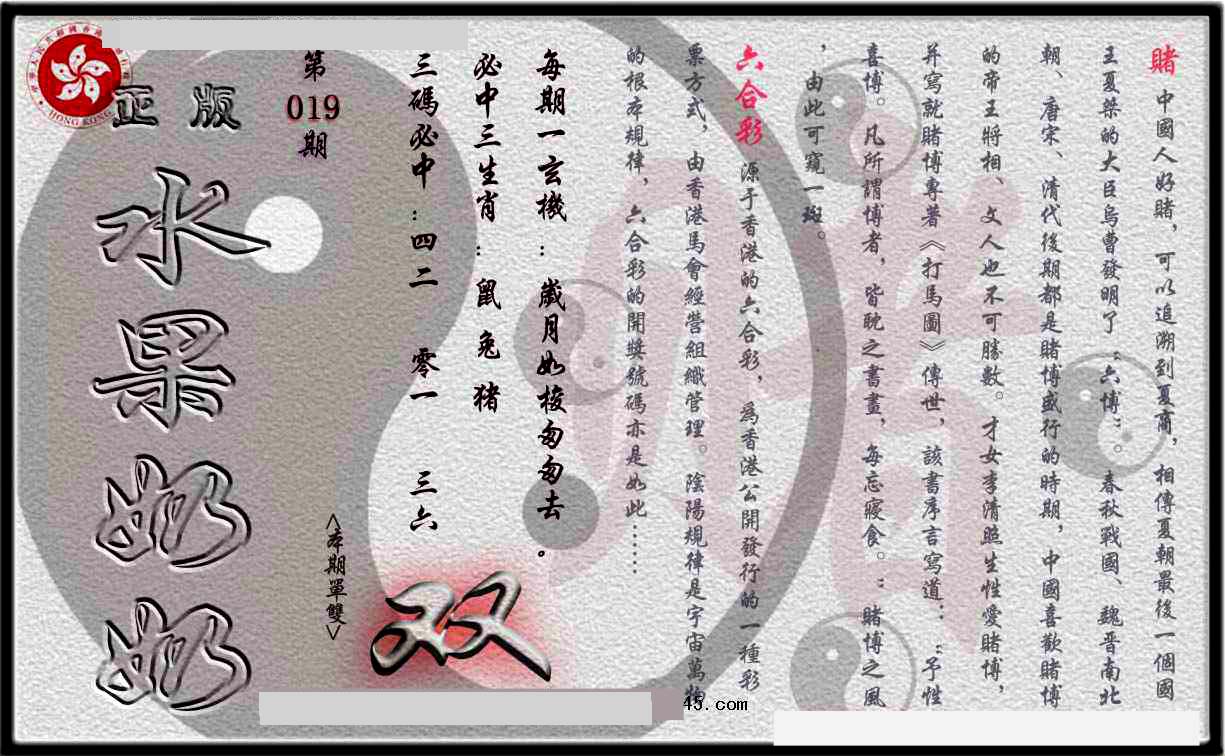 賭 中國人好賭，可以追溯到夏商，相傳夏朝最後一個國
王夏桀的大臣烏曹發明了“六博”。春秋戰國、魏晋南北
朝、唐宋、清代後期都是賭博盛行的時期，中國喜歡賭博
的帝王將相、文人也不可勝數。才女李清照生性愛賭博，
并寫就賭博專著《打馬圖》傳世，該書序言寫道：“予性
喜博。凡所謂博者，皆耽之書畫，每忘寢食。”賭博之風
，由此可窺一斑。
六合彩 源于香港的六合彩，爲香港公開發行的一種彩
票方式，由香港馬會經營組織管理。陰陽規律是宇宙萬物
的根本規律，六合彩的開獎號碼亦是如此……
每期一玄機：歲月如梭匆匆去。
必中三生肖：鼠 兔 猪
三碼必中：四二 零一 三六
<本期單雙>
双
第
019
期
正版
水果奶奶
HONG KONG
45.com